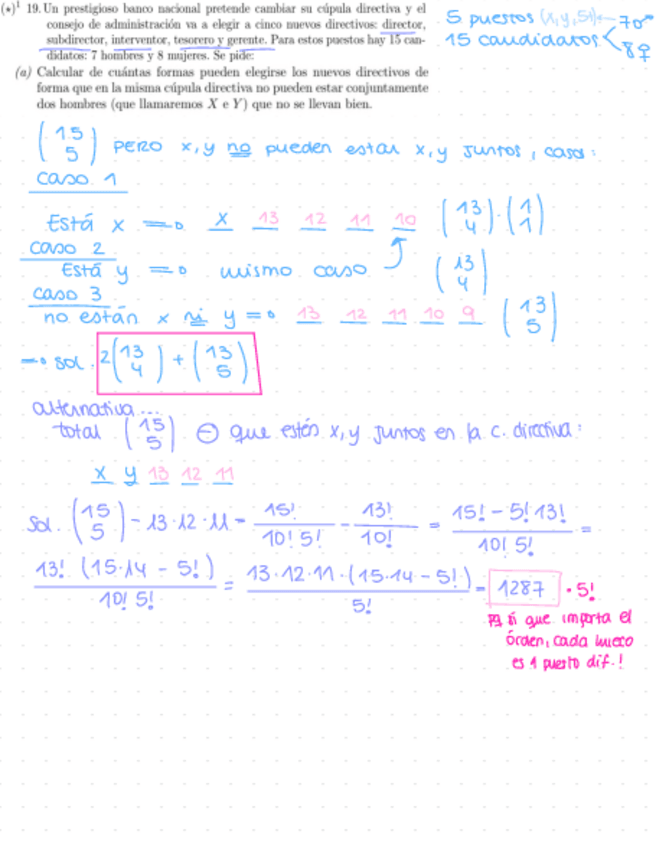 (⋆)¹ 19. Un prestigioso banco nacional pretende cambiar su cúpula directiva y el
consejo de administración va a elegir a cinco nuevos directivos: director,
subdirector, interventor, tesorero y gerente. Para estos puestos hay 15 can-
didatos: 7 hombres y 8 mujeres. Se pide:
(a) Calcular de cuántas formas pueden elegirse los nuevos directivos de
forma que en la misma cúpula directiva no pueden estar conjuntamente
dos hombres (que llamaremos X e Y) que no se llevan bien.
5 puestos
15 candidatos < 7♂
8♀
(15 5) PERO x,y no pueden estar x,y juntos, casos:
caso 1
Está x ⇒ x 13 12 11 10 (13 4)·(1 1)
caso 2
Está y ⇒ mismo caso (13 4)
caso 3
no están x ni y ⇒ 13 12 11 10 9 (13 5)
⇒ sol. 2(13 4) + (13 5)
alternativa...
total (15 5) ⊖ que estén x,y juntos en la c. directiva:
x y 13 12 11
Sol. (15 5) - 13·12·11 = 15!/10! 5! - 13!/10! = 15! - 5! 13!/10! 5! =
13! (15·14 - 5!)/10! 5! = 13·12·11·(15·14 - 5!)/5! = 1287 · 5!
si que importa el
órden, cada hueco
es 1 puesto dif.!